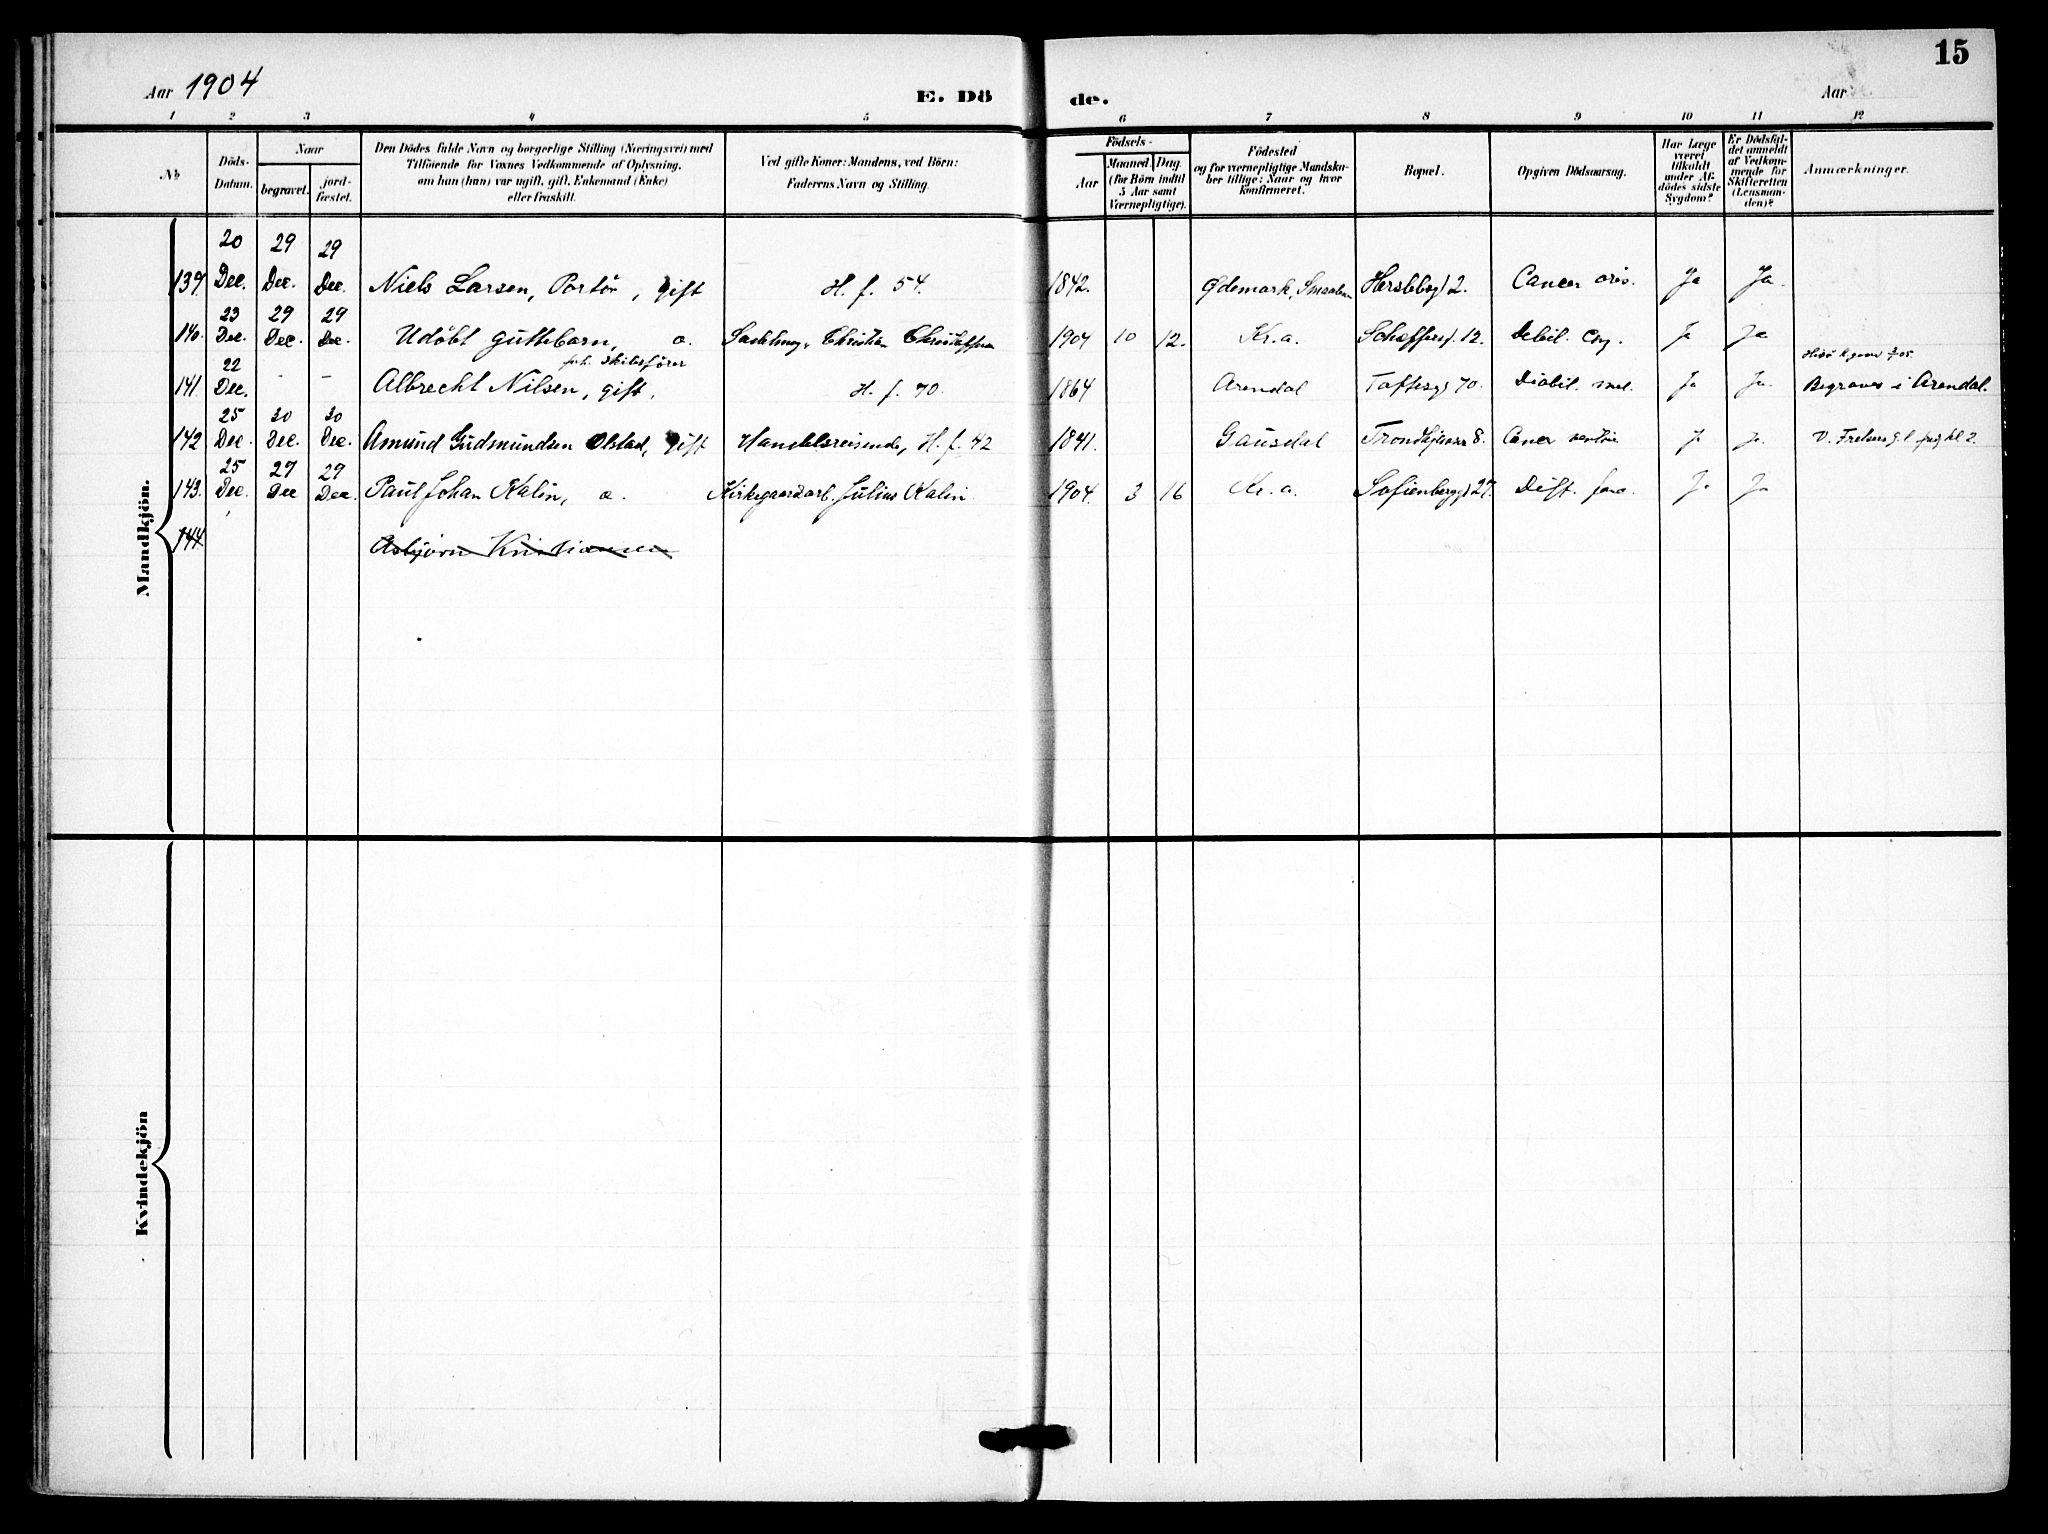 15
Aar 1904
E. Dö
de.
Aar
1 2 3 4 5 6 7 8 9 10 11 12
No
Döds-
Datum.
Naar
begravet.
jord-
fæstet.
Den Dödes fulde Navn og borgerlige Stilling (Næringsvei) med
Tilföiende for Voxnes Vedkommende af Oplysning,
om han (hun) var ugift, gift, Enkemand (Enke)
eller fraskilt.
Ved gifte Koner: Mandens, ved Börn:
Faderens Navn og Stilling.
Födsels-
Aar
Maaned. Dag.
(for Börn indtil
5 Aar samt
Værnepligtige).
Födested
og for værnepligtige Mandska-
ber tillige: Naar og hvor
Konfirmeret.
Bopæl.
Opgiven Dödsaarsag.
Har Læge
været
tilkaldt
under Af-
dödes sidste
Sygdom?
Er Dödsfal-
det anmeldt
af Vedkom-
mende for
Skifteretten
(Lensman-
den)?
Anmærkninger.
Mandkjön.
20 29 29
139. Dec. Dec. Dec. Niels Larsen, Portör, gift H. f. 54. 1842. Ødemark, Smaalen Herslebsg 2. Cancer oris. Ja Ja.
23 29 29
140. Dec. Dec. Dec. Udöbt guttebarn, a. Christian Christoffersen 1904 10 12. Kr.a. Scheffersg. 12. Debil. cong. J Ja
22 forh. Skibsfører
141. Dec. - - Albrecht Nilsen, gift, H. f. 70. 1864 Arendal Toftesg 70. Diabet. mel. J Ja. Begraves i Arendal.
25 30 30
142 Dec. Dec. Dec. Amund Gudsmundsen Olstad, gift Handelsreisende, H. f. 42 1841. Gausdal Trondhjemsv 8. Cancer J J. V. Frelsers g.l
25 29 29
143. Dec. Dec Dec. Paul Johan Kalin, a. Kirkegaardsarb. Julius Kalin 1904. 3 16 Kr. a. Sofienbergg 27. Dift. J J
144. Asbjørn Kristiansen
Kvindekjön